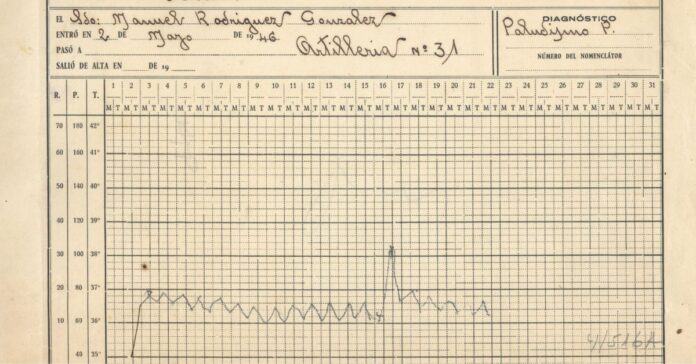 EL Sdo: Manuel Rodriguez Gonzalez
ENTRÓ EN 2 DE Mayo DE 1946
PASÓ A Artilleria Nº 31
SALIÓ DE ALTA EN DE 19
DIAGNÓSTICO
Paludismo P.
NÚMERO DEL NOMENCLÁTOR
R. P. T. 1 2 3 4 5 6 7 8 9 10 11 12 13 14 15 16 17 18 19 20 21 22 23 24 25 26 27 28 29 30 31
M T M T M T M T M T M T M T M T M T M T M T M T M T M T M T M T M T M T M T M T M T M T M T M T M T M T M T M T M T M T M T
70 180 42°
60 160 41°
50 140 40°
40 120 39°
30 100 38°
20 80 37°
10 60 36°
40 35°